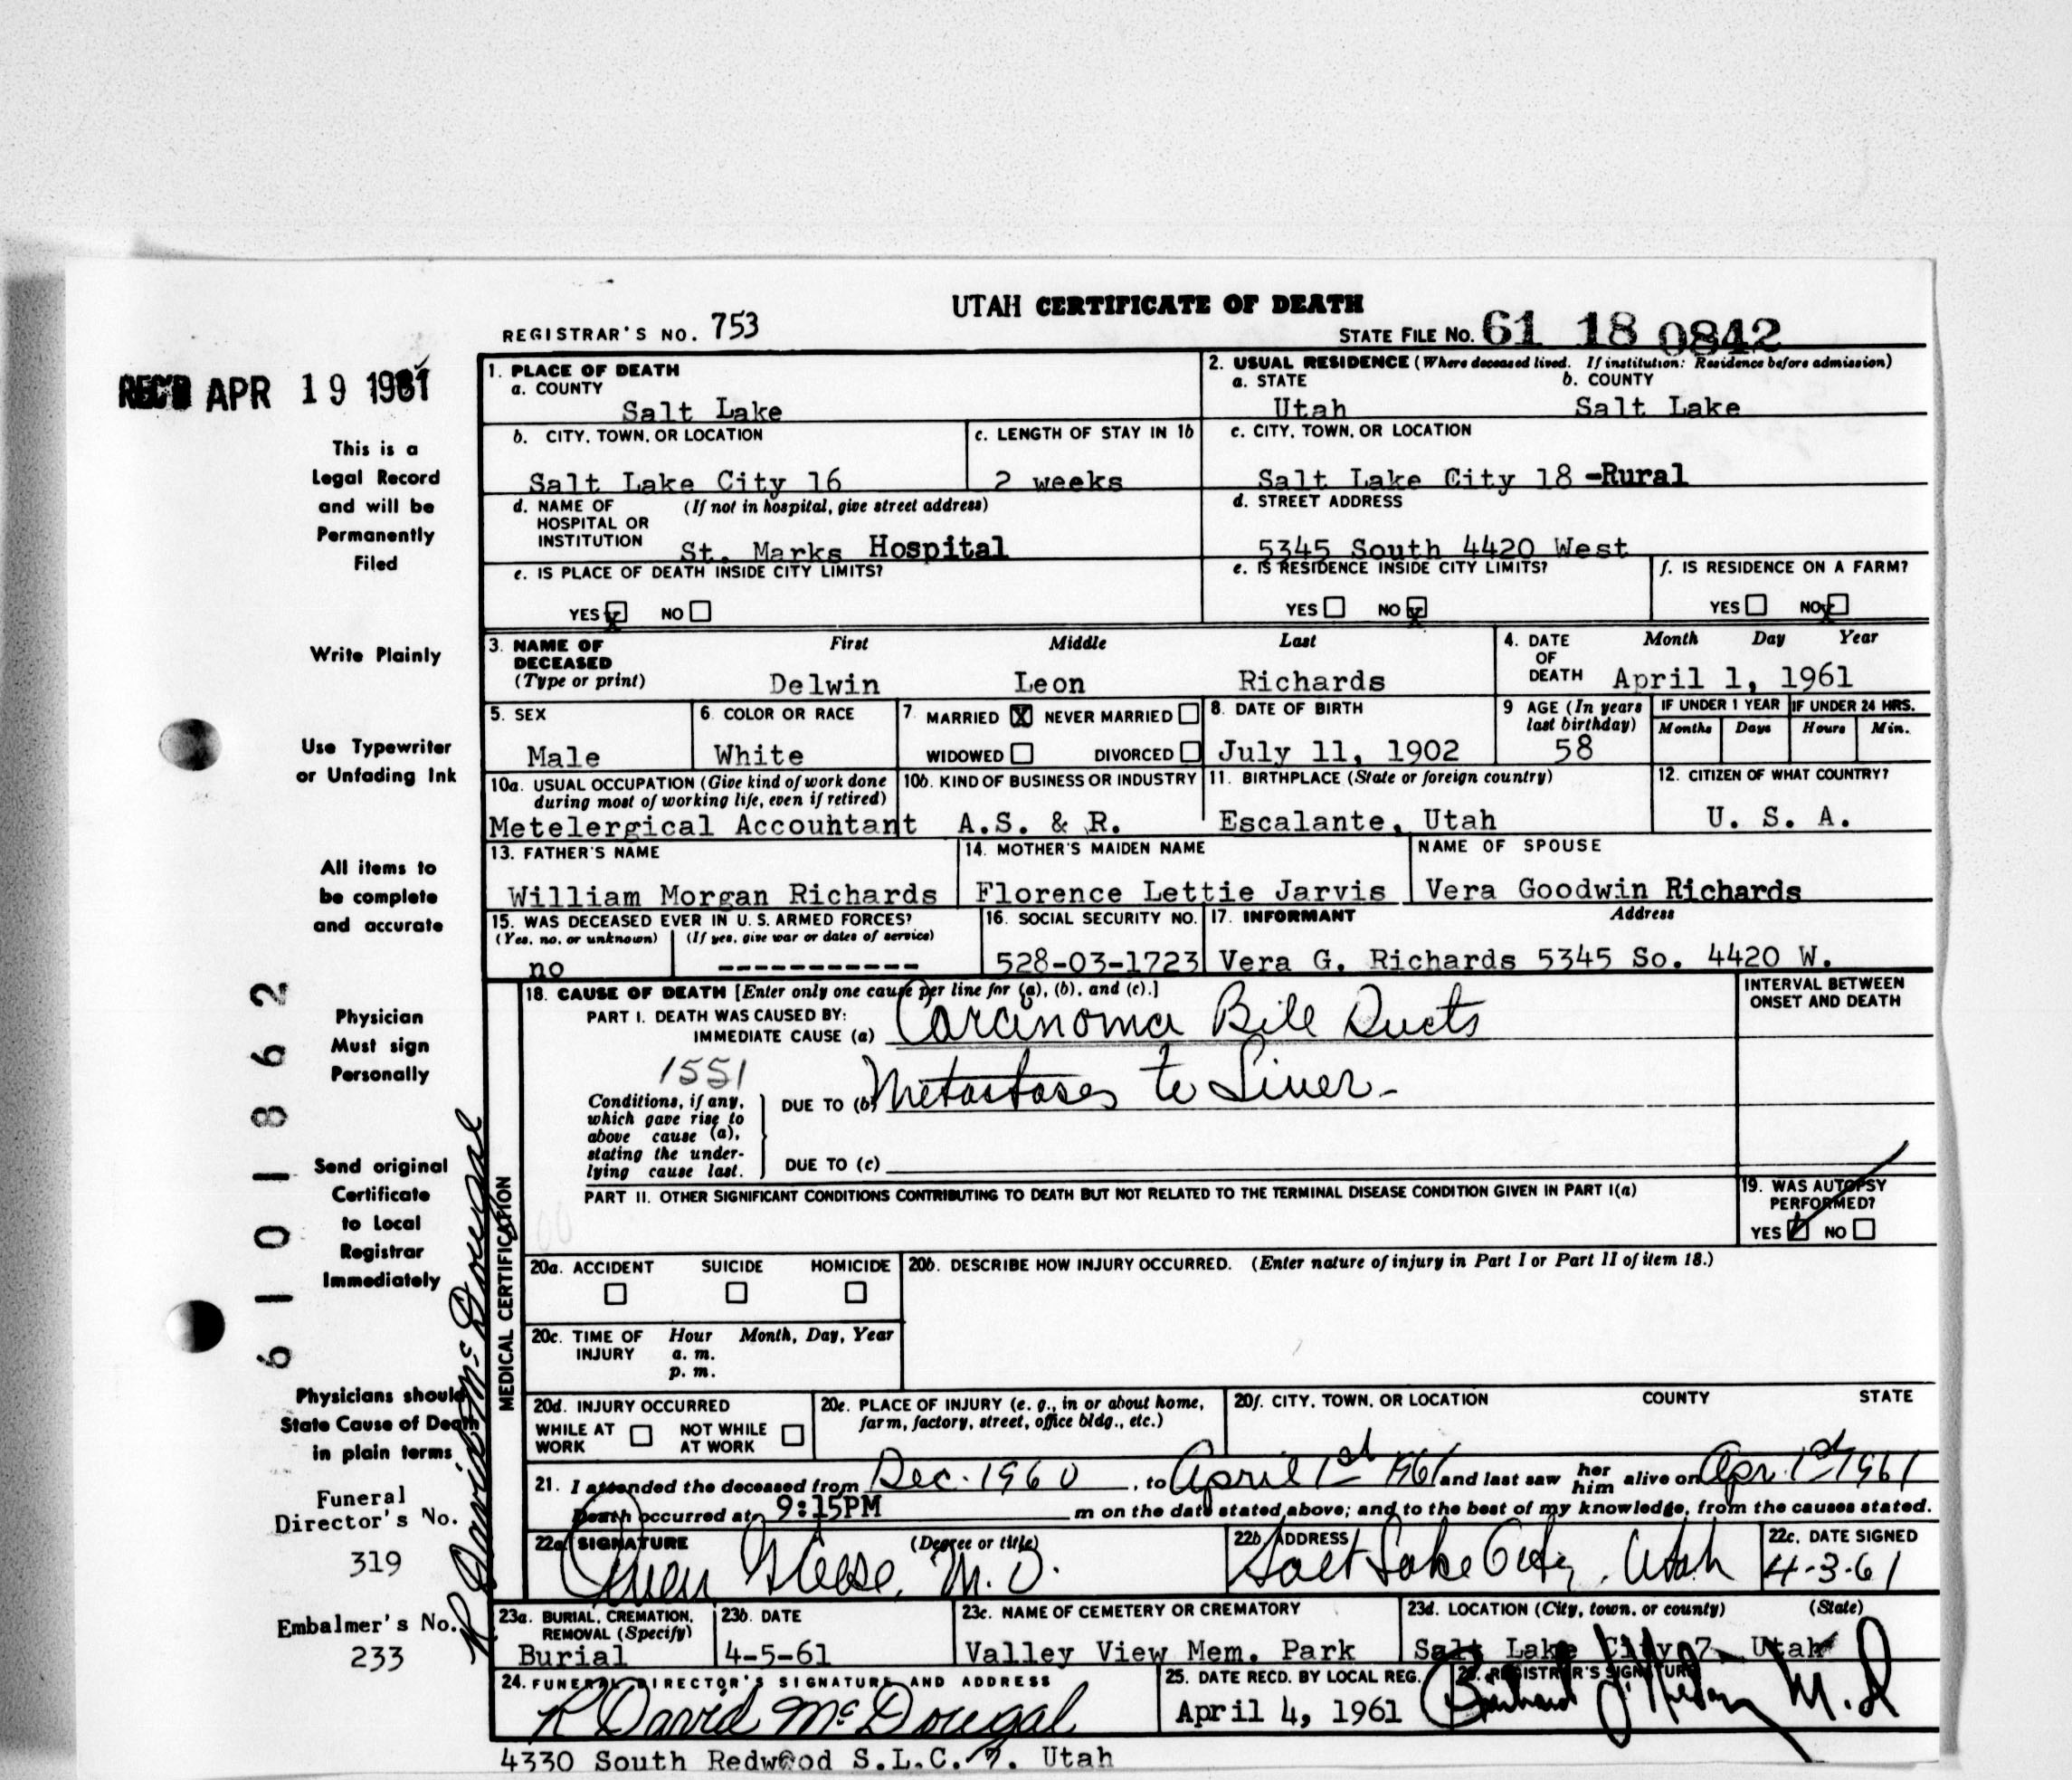 UTAH CERTIFICATE OF DEATH
REGISTRAR'S NO. 753
STATE FILE NO. 61 18 0842
REC'D APR 19 1961
This is a
Legal Record
and will be
Permanently
Filed
Write Plainly
Use Typewriter
or Unfading Ink
All items to
be complete
and accurate
Physician
Must sign
Personally
Send original
Certificate
to Local
Registrar
Immediately
Physicians should
State Cause of Death
in plain terms
Funeral
Director's No.
319
Embalmer's No.
233
6101862
R David McDougal
1. PLACE OF DEATH
a. COUNTY
Salt Lake
2. USUAL RESIDENCE (Where deceased lived. If institution: Residence before admission)
a. STATE b. COUNTY
Utah Salt Lake
b. CITY, TOWN, OR LOCATION
Salt Lake City 16
c. LENGTH OF STAY IN 1b
2 weeks
c. CITY, TOWN, OR LOCATION
Salt Lake City 18 -Rural
d. NAME OF (If not in hospital, give street address)
HOSPITAL OR
INSTITUTION St. Marks Hospital
d. STREET ADDRESS
5345 South 4420 West
e. IS PLACE OF DEATH INSIDE CITY LIMITS?
YES x NO
e. IS RESIDENCE INSIDE CITY LIMITS?
YES NO x
f. IS RESIDENCE ON A FARM?
YES NO x
3. NAME OF First Middle Last
DECEASED
(Type or print) Delwin Leon Richards
4. DATE Month Day Year
OF
DEATH April 1, 1961
5. SEX
Male
6. COLOR OR RACE
White
7. MARRIED X NEVER MARRIED
WIDOWED DIVORCED
8. DATE OF BIRTH
July 11, 1902
9 AGE (In years
last birthday)
58
IF UNDER 1 YEAR IF UNDER 24 HRS.
Months Days Hours Min.
10a. USUAL OCCUPATION (Give kind of work done
during most of working life, even if retired)
Metelergical Accouhtant
10b. KIND OF BUSINESS OR INDUSTRY
A.S. & R.
11. BIRTHPLACE (State or foreign country)
Escalante, Utah
12. CITIZEN OF WHAT COUNTRY?
U. S. A.
13. FATHER'S NAME
William Morgan Richards
14. MOTHER'S MAIDEN NAME
Florence Lettie Jarvis
NAME OF SPOUSE
Vera Goodwin Richards
15. WAS DECEASED EVER IN U. S. ARMED FORCES?
(Yes, no, or unknown) (If yes, give war or dates of service)
no -----------
16. SOCIAL SECURITY NO.
528-03-1723
17. INFORMANT Address
Vera G. Richards 5345 So. 4420 W.
MEDICAL CERTIFICATION
18. CAUSE OF DEATH [Enter only one cause per line for (a), (b), and (c).]
PART I. DEATH WAS CAUSED BY:
IMMEDIATE CAUSE (a) Carcinoma Bile Ducts
1551
Conditions, if any,
which gave rise to
above cause (a),
stating the under-
lying cause last.
DUE TO (b) Metastases to Liver-
DUE TO (c)
INTERVAL BETWEEN
ONSET AND DEATH
PART II. OTHER SIGNIFICANT CONDITIONS CONTRIBUTING TO DEATH BUT NOT RELATED TO THE TERMINAL DISEASE CONDITION GIVEN IN PART I(a)
19. WAS AUTOPSY
PERFORMED?
YES NO
20a. ACCIDENT SUICIDE HOMICIDE
20b. DESCRIBE HOW INJURY OCCURRED. (Enter nature of injury in Part I or Part II of item 18.)
20c. TIME OF Hour Month, Day, Year
INJURY a. m.
p. m.
20d. INJURY OCCURRED
WHILE AT NOT WHILE
WORK AT WORK
20e. PLACE OF INJURY (e. g., in or about home,
farm, factory, street, office bldg., etc.)
20f. CITY, TOWN, OR LOCATION COUNTY STATE
21. I attended the deceased from Dec. 1960, to April 1st 1961 and last saw her him alive on Apr. 1st 1961
Death occurred at 9:15PM m on the date stated above; and to the best of my knowledge, from the causes stated.
22a. SIGNATURE (Degree or title)
Owen Reese, M. D.
22b. ADDRESS
Salt Lake City, Utah
22c. DATE SIGNED
4-3-61
23a. BURIAL, CREMATION,
REMOVAL (Specify)
Burial
23b. DATE
4-5-61
23c. NAME OF CEMETERY OR CREMATORY
Valley View Mem. Park
23d. LOCATION (City, town, or county) (State)
Salt Lake City 7 Utah
24. FUNERAL DIRECTOR'S SIGNATURE AND ADDRESS
R David McDougal
25. DATE RECD. BY LOCAL REG.
April 4, 1961
26. REGISTRAR'S SIGNATURE
M.D
4330 South Redwood S.L.C. 7. Utah